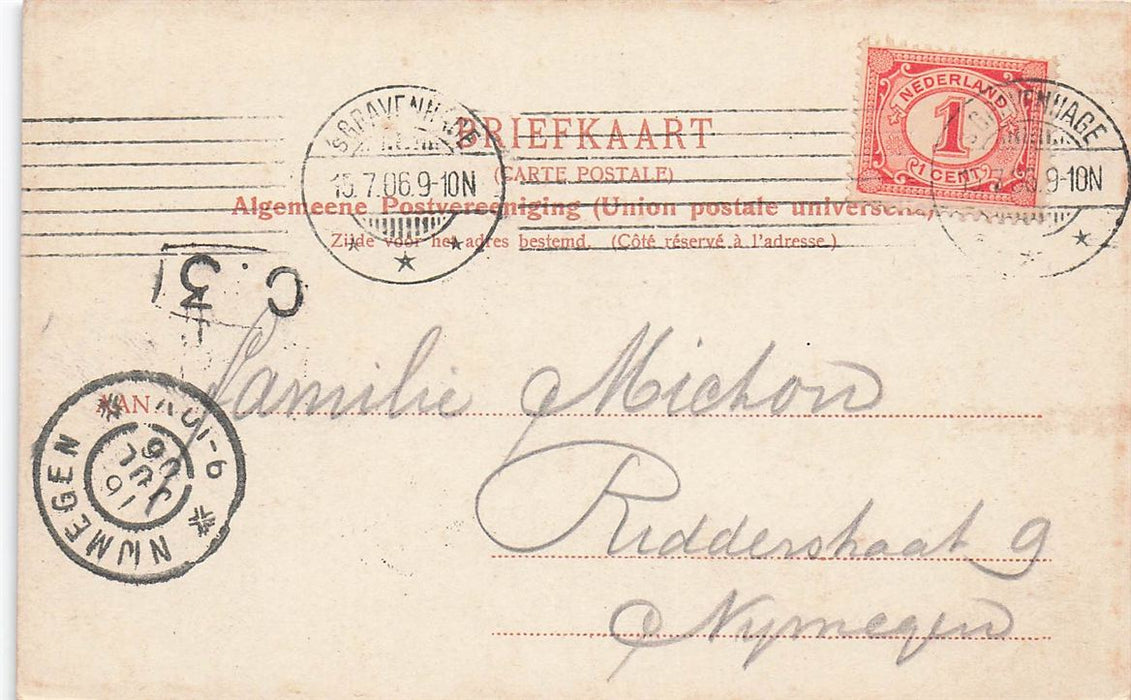 BRIEFKAART
(CARTE POSTALE)
Algemeene Postvereeniging (Union postale universelle)
Zijde voor het adres bestemd. (Côté réservé à l'adresse.)
'SGRAVENHAGE
15.7.06.9-10N
NEDERLAND
1
1 CENT
VENHAGE
9-10N
C.3
AAN Familie Michon
Ridderstraat 9
Nymegen
NIJMEGEN
9-10V
16
JUL
06